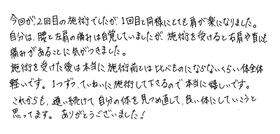 今回が2回目の施術でしたが1回目と同様にとても肩が楽になりました。
自分は、腰と左肩の痛みは自覚していましたが、施術を受けると右肩や首にも
痛みがあることに気がつきました。
施術を受けた後は本当に施術前とは比べものにならないくらい体全体
軽いです。1つずつ、ていねいに施術して下さるので本当に嬉しいです。
これからも、通い続けて自分の体を見つめ直して、良い体にしていこうと
思ってます。ありがとうございました!